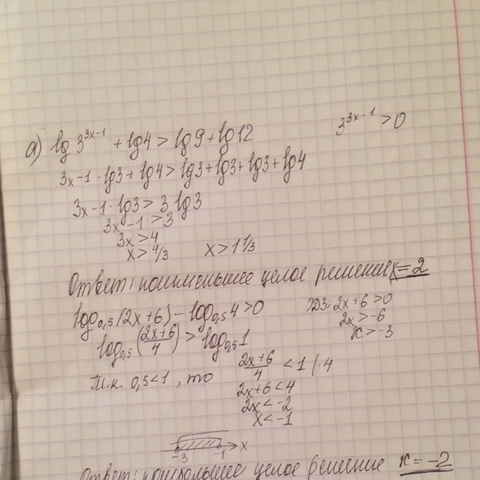 а) lg 3^(3x-1) + lg4 > lg9 + lg12
3^(3x-1) > 0
3x-1·lg3 + lg4 > lg3 + lg3 + lg3 + lg4
3x-1·lg3 > 3 lg3
3x-1 > 3
3x > 4
x > 4/3
x > 1 1/3
Ответ: наименьшее целое решение x = 2
log0,5(2x+6) - log0,5 4 > 0
log0,5((2x+6)/4) > log0,5 1
т.к. 0,5 < 1, то
ОДЗ: 2x+6 > 0
2x > -6
x > -3
(2x+6)/4 < 1 |·4
2x+6 < 4
2x < -2
x < -1
-3 -1 x
Ответ: наибольшее целое решение x = -2